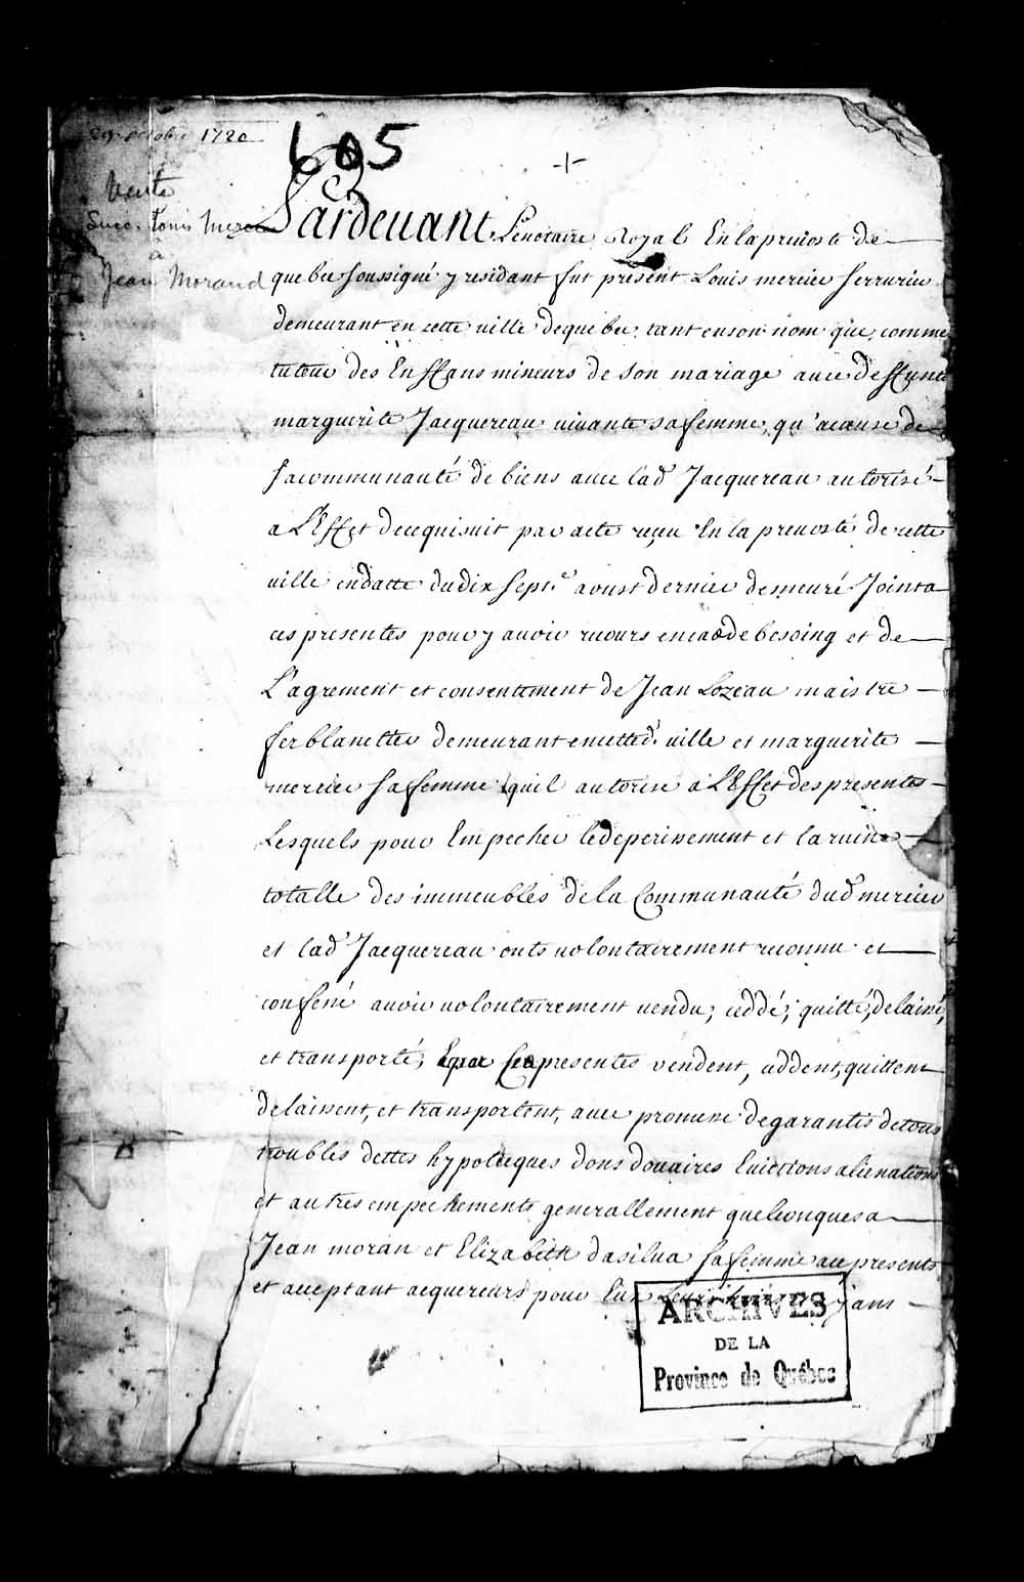 29 octobre 1720
605
Vente
Succ. Louis Mercier
à
Jean Morand
Pardeuant Lenotaire Royal En la preuosté de
quebec soussigné y residant fut présent Louis mercier serrurier
demeurant en cette uille de quebec tant en son nom que comme
tuteur des Enffans mineurs de son mariage auec deffunte
marguerite Jacquereau uiuante sa femme, qu'acause de
sa communauté de biens auec lad Jacquereau autorisé
a L'Effet de cequisuit par acte reçu En la preuosté de cette
uille en datte du dix sept.e aoust dernier demeuré Joint a
ces presentes pour y auoir recours en cas de besoing et de
L'agrement et consentement de Jean Lozeau maistre
ferblanttier demeurant en cetted. uille et marguerite
mercier sa femme quil autorise a L'Effet des presentes
Lesquels pour Empecher le deperissement et la ruine
totalle des immeubles de la Communauté dud mercier
et lad Jacquereau onts uolontairement reconnu et
confessé auoir uolontairement uendu, ceddé, quitté, delaissé,
et transporté, Et par Ces presentes vendent, ceddent, quittent
delaissent, et transportent, auec promesse de garantis de tous
troubles dettes hypoteques dons douaires Euictions alienations
et autres empechements generallement quelconques a
Jean moran et Elizabeth dasilua sa femme ace presents
et acceptant acquereurs pour Eux Leurs
ARCHIVES
DE LA
Province de Québec